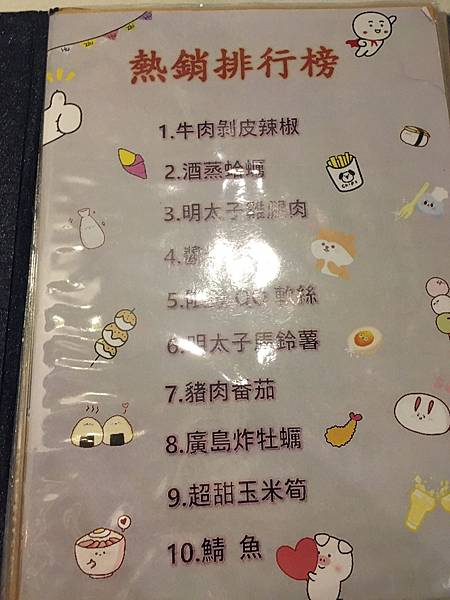 熱銷排行榜
1.牛肉剝皮辣椒
2.酒蒸蛤蠣
3.明太子雞腿肉
4.醬
5. QQ 軟絲
6.明太子馬鈴薯
7.豬肉番茄
8.廣島炸牡蠣
9.超甜玉米筍
10.鯖 魚
CHIPS